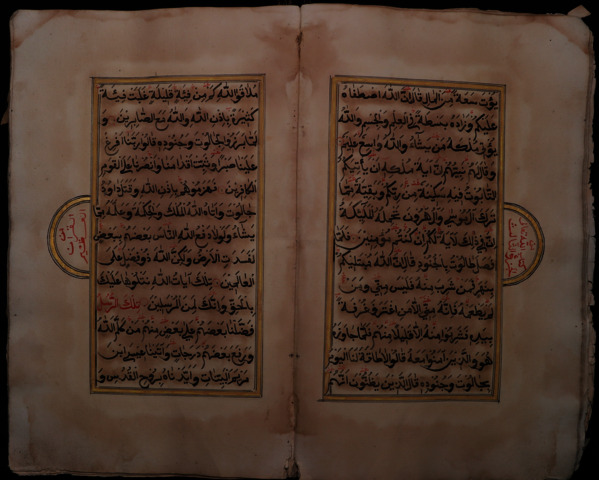 يؤت سعة من المال قال ان الله اصطفاه
عليكم وزاده بسطة في العلم والجسم والله
يؤتي ملكه من يشاء والله واسع عليم
وقال لهم نبيهم ان اية ملكه ان يأتيكم
التابوت فيه سكينة من ربكم وبقية مما
ترك ال موسى وال هرون تحمله الملئكة
ان في ذلك لاية لكم ان كنتم مؤمنين فلما
فصل طالوت بالجنود قال ان الله مبتليكم
بنهر فمن شرب منه فليس مني ومن لم
يطعمه فانه مني الا من اغترف غرفة
بيده فشربوا منه الا قليلا منهم فلما جاوزه
هو والذين امنوا معه قالوا لا طاقة لنا اليوم
بجالوت وجنوده قال الذين يظنون انهم
ملاقوا الله كم من فئة قليلة غلبت فئة
كثيرة باذن الله والله مع الصابرين و
لما برزوا لجالوت وجنوده قالوا ربنا افرغ
علينا صبرا وثبت اقدامنا وانصرنا على القوم
الكافرين فهزموهم باذن الله وقتل داود
جالوت واتاه الله الملك والحكمة وعلمه مما
يشاء ولولا دفع الله الناس بعضهم ببعض
لفسدت الارض ولكن الله ذو فضل على
العالمين تلك ايات الله نتلوها عليك
بالحق وانك لمن المرسلين تلك الرسل
فضلنا بعضهم على بعض منهم من كلم الله
ورفع بعضهم درجات واتينا عيسى ابن
مريم البينات وايدناه بروح القدس و